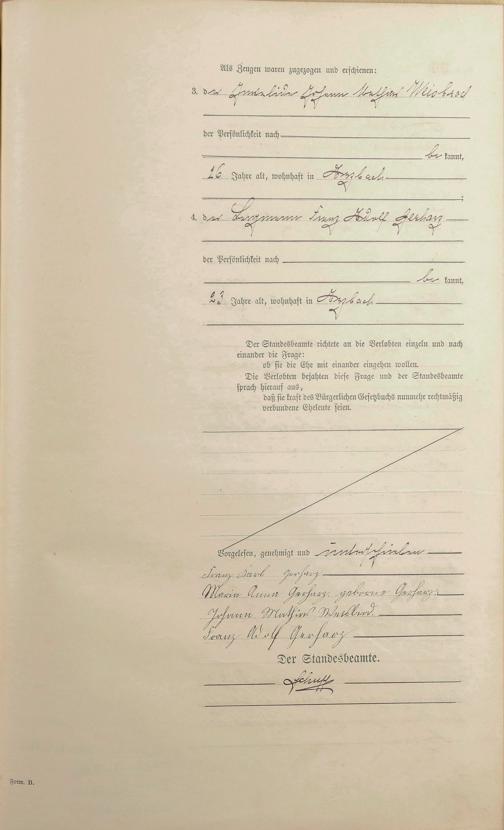 Als Zeugen waren zugezogen und erschienen:
3. der Johann Mathias
der Persönlichkeit nach
be kannt,
26 Jahre alt, wohnhaft in
;
4. der Bergmann Franz Adolf Gerharz
der Persönlichkeit nach
be kannt,
23 Jahre alt, wohnhaft in
Der Standesbeamte richtete an die Verlobten einzeln und nach
einander die Frage:
ob sie die Ehe mit einander eingehen wollen.
Die Verlobten bejahten diese Frage und der Standesbeamte
sprach hierauf aus,
daß sie kraft des Bürgerlichen Gesetzbuchs nunmehr rechtmäßig
verbundene Eheleute seien.
Vorgelesen, genehmigt und unterschrieben
Franz Karl Gerharz
Maria Anna Gerharz geborne Gerharz
Johann Mathias
Franz Adolf Gerharz
Der Standesbeamte.
Form. B.